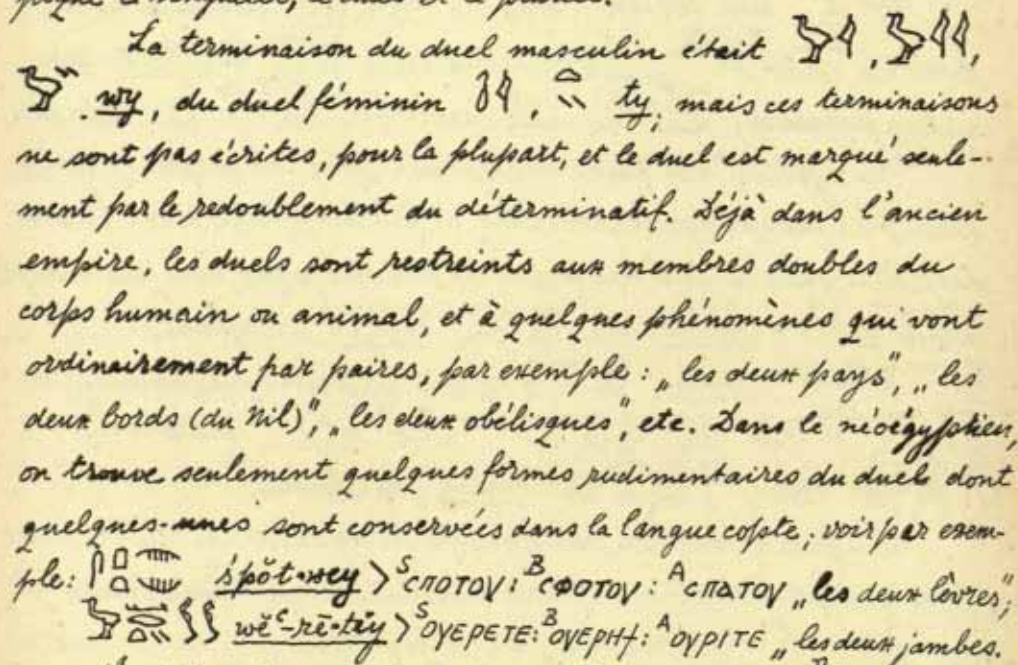 La terminaison du duel masculin était 𓅱𓇋, 𓅱𓇋𓇋,
𓅱𓏭. wy, du duel féminin 𓍘𓇋, 𓏏𓏭 ty; mais ces terminaisons
ne sont pas écrites, pour la plupart, et le duel est marqué seule-
ment par le redoublement du déterminatif. Déjà dans l'ancien
empire, les duels sont restreints aux membres doubles du
corps humain ou animal, et à quelques phénomènes qui vont
ordinairement par paires, par exemple: „les deux pays", „les
deux bords (du Nil)", „les deux obélisques", etc. Dans le néoégyptien,
on trouve seulement quelques formes rudimentaires du duel dont
quelques-unes sont conservées dans la langue copte; voir par exem-
ple: 𓋴𓊪𓏏 śpŏt•wey > ˢⲥⲡⲟⲧⲟⲩ: ᴮⲥⲫⲟⲧⲟⲩ: ᴬⲥⲡⲁⲧⲟⲩ „les deux lèvres";
wĕᶜ-rē-tĕy > ˢⲟⲩⲉⲣⲉⲧⲉ: ᴮⲟⲩⲉⲣⲏϯ: ᴬⲟⲩⲣⲓⲧⲉ „les deux jambes.